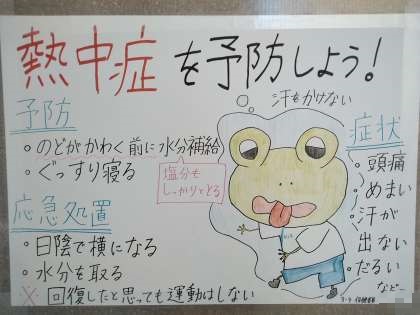 熱中症を予防しよう!
汗もかけない
予防
・のどがかわく前に水分補給
・ぐっすり寝る
塩分も
しっかりとる
応急処置
・日陰で横になる
・水分を取る
※回復したと思っても運動はしない
症状
・頭痛
・めまい
・汗が
出ない
・だるい
など…